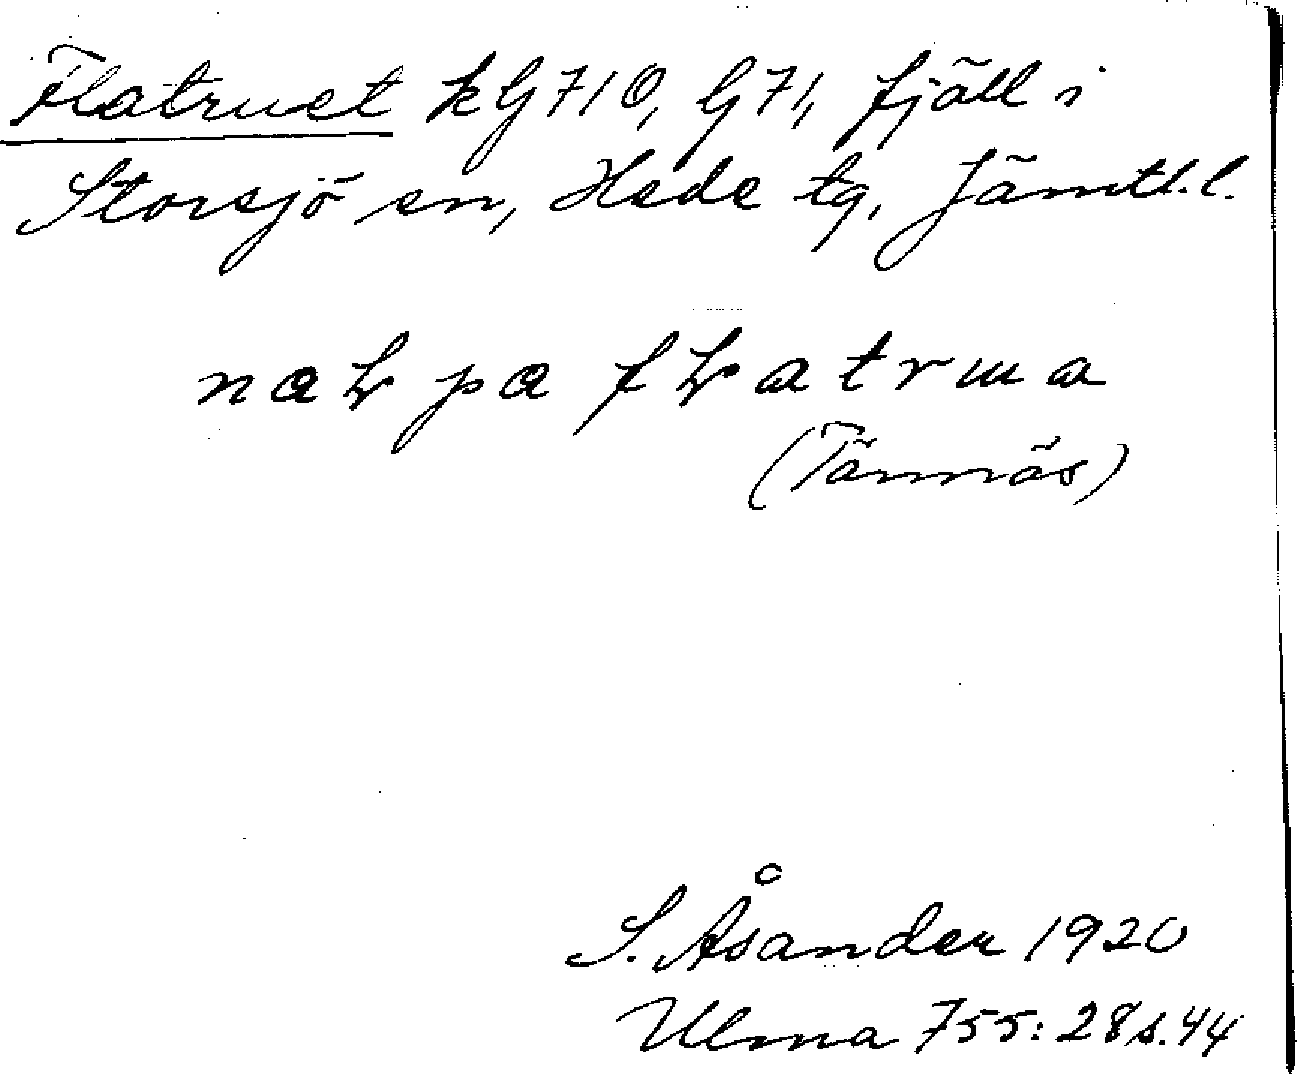 Flatruet kG710, G71, fjäll i
Storsjö sn, Hede tg, Jämtl. l.
(Tännäs)
S. Åsander 1920
Ulma 755: 28 s. 44